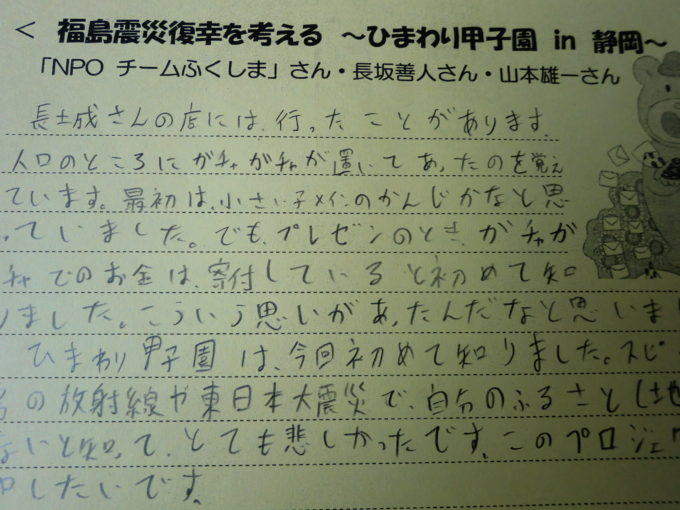 < 福島震災復幸を考える ～ひまわり甲子園 in 静岡～
「NPO チームふくしま」さん・長坂善人さん・山本雄一さん
さんの店には、行ったことがあります。
入口のところにガチャがチャが置いてあったのを覚え
ています。最初は、小さい子メインのかんじかなと思
っていました。でも、プレゼンのとき、ガチャが
チャでのお金は、寄付していると初めて知
りました。こういう思いがあったんだなと思いま
ひまわり甲子園は、今回初めて知りました。
の放射線や東日本大震災で、自分のふるさと(地
ないと知って、とても悲しかったです。このプロジェク
したいです。